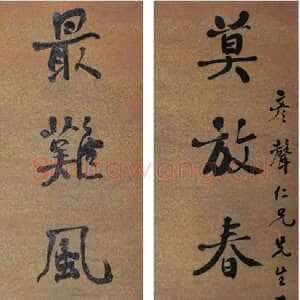 彦聲仁兄先生
莫放春
最難風